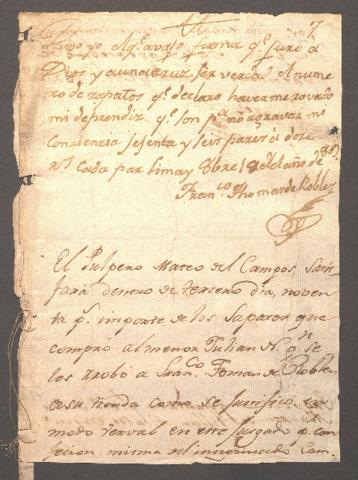 7
Digo yo el q.e avajo firma q.e juro a
Dios y a una cruz ser verdad el nume
ro de zapatos q.e declaro haverme rovado
mi deprendiz q.e son p.a no agravar mi
Conciencia sesenta y seis pares á dose
r.s Cada par Lima y 8bre 18 del año de
Fran.co Thomas de Robles
El Pulpero Mateo del Campos, satis
fará dentro de tercero dia, noven
ta p.s importe de los Sapatos que
compró al menor Julian N. q.n se
los rrobó a Fran.co Tomas de Robles
en su tienda como se justificó en
modo verval en este Juzgado p.r con
fecion misma del